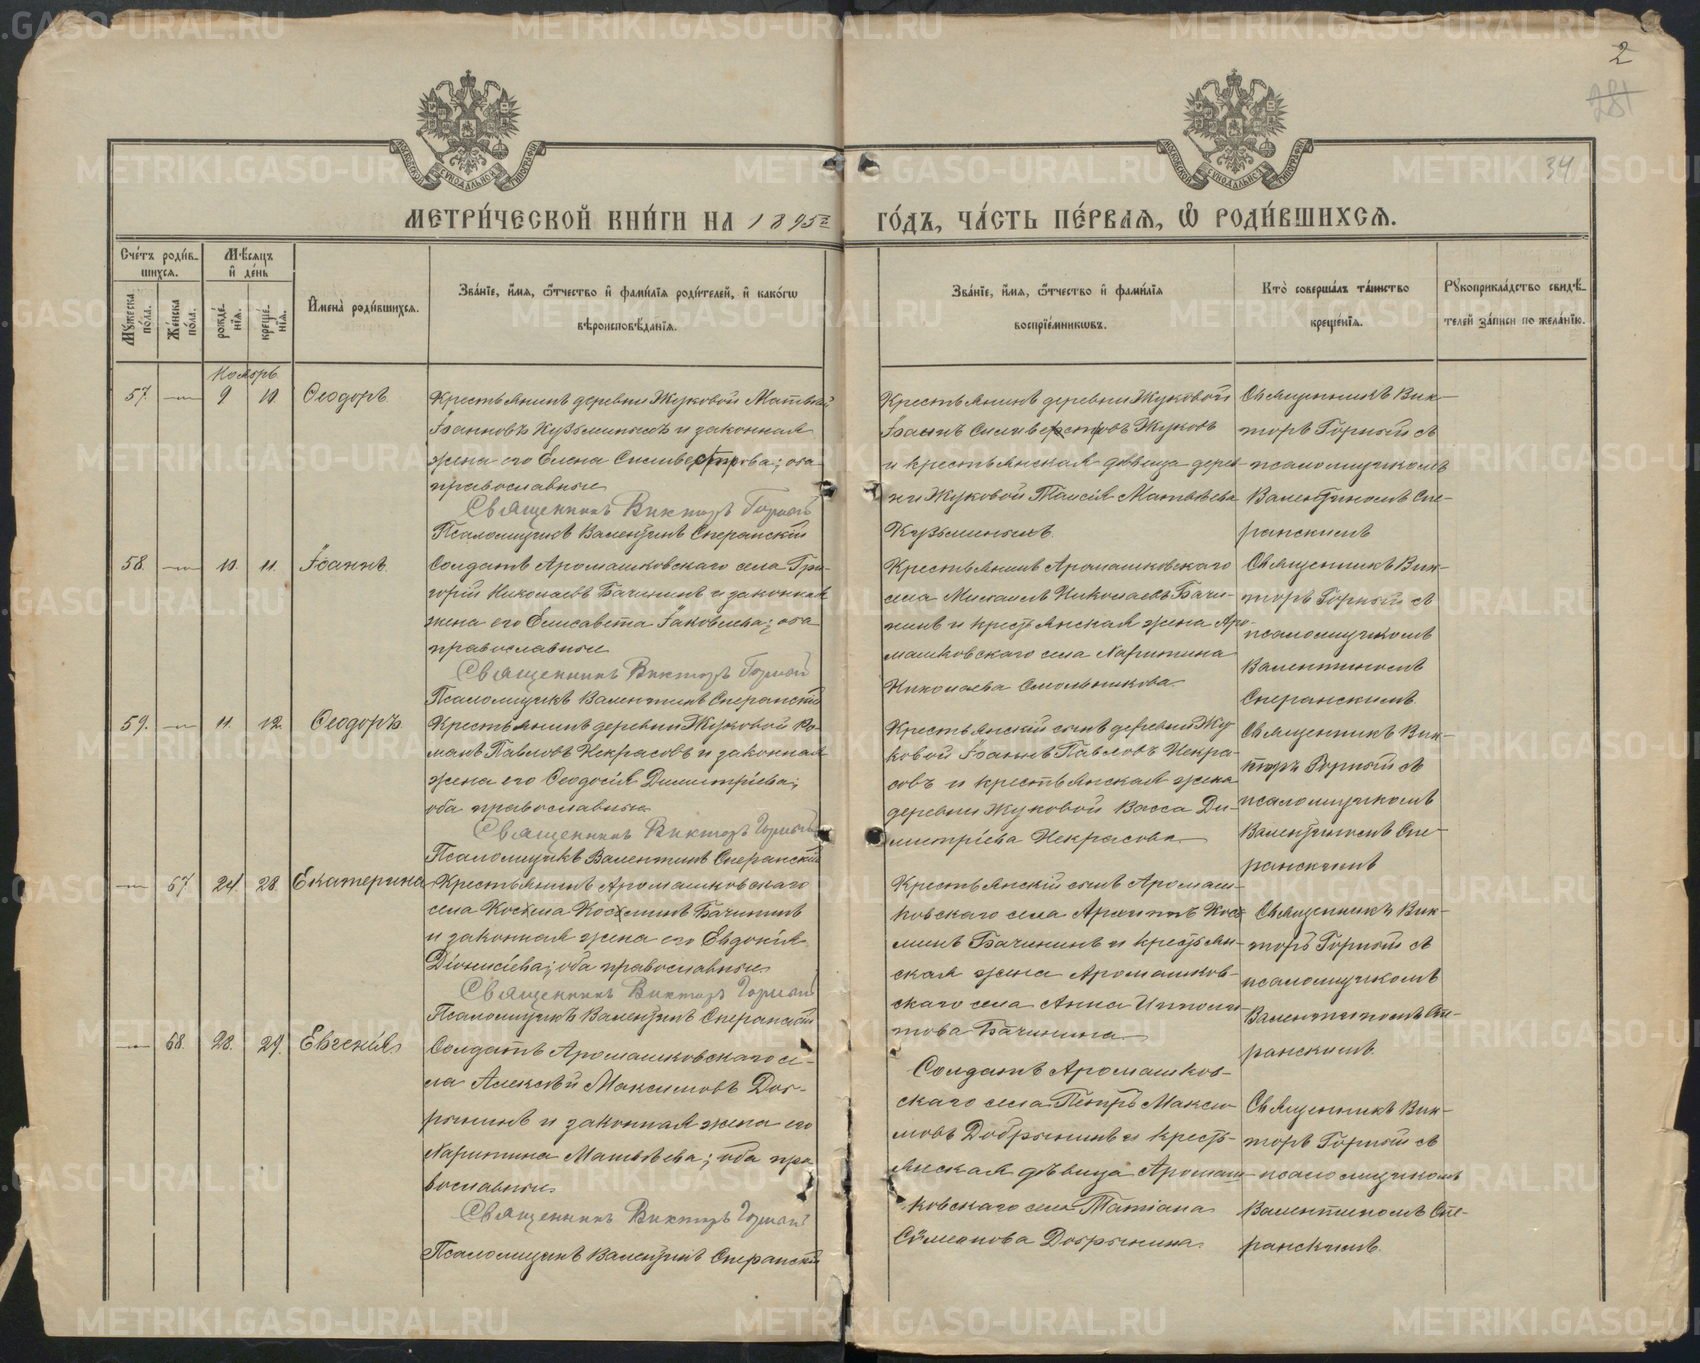 2
281
34
МЕТРИ́ЧЕСКОЙ КНИ́ГИ НА 1895й ГО́ДЪ, ЧА́СТЬ ПЕ́РВАЯ, Ѡ РОДИ́ВШИХСЯ.
Сче́тъ роди́в-
шихся.
Мꙋ́жеска по́ла.
Же́нска по́ла.
Мѣ́сяцъ
и҆ де́нь
рожде́нїя.
креще́нїя.
И҆мена̀ роди́вшихся.
Зва́нїе, и҆́мя, ѻ҆́тчество и҆ фами́лїя роди́телей, и҆ како́гѡ
вѣроисповѣ́данїя.
Зва́нїе, и҆́мя, ѻ҆́тчество и҆ фами́лїя
воспрїе́мникѡвъ.
Кто̀ соверша́лъ та́инство
креще́нїя.
Рꙋкоприкла́дство свидѣ́-
телей за́писи по жела́нїю.
Ноябрь
57. — 9 10. Ѳеодоръ.
Крестьянинъ деревни Жуковой Матвѣй
Іоанновъ Кузьминыхъ и законная
жена его Елена Сильвестрова; оба
православные
Священникъ Викторъ Горный
Псаломщикъ Валентинъ Сперанскій
Крестьянинъ деревни Жуковой
Іоаннъ Сильвестровъ Жуковъ
и крестьянская дѣвица дерев-
ни Жуковой Таисія Матвѣева
Кузьминыхъ.
Священникъ Вик-
торъ Горный съ
псаломщикомъ
Валентиномъ Спе-
ранскимъ
58. — 10. 11. Іоаннъ.
Солдатъ Аромашковскаго села Гри-
горій Николаевъ Бачининъ и законная
жена его Елисавета Іаковлева; оба
православные
Священникъ Викторъ Горный
Псаломщикъ Валентинъ Сперанскій
Крестьянинъ Аромашковскаго
села Михаилъ Николаевъ Бачи-
нинъ и крестьянская жена Аро-
машковскаго села Харитина
Николаева Смольникова.
Священникъ Вик-
торъ Горный съ
псаломщикомъ
Валентиномъ
Сперанскимъ.
59. — 11. 12. Ѳеодоръ.
Крестьянинъ деревни Жуковой Ро-
манъ Павловъ Некрасовъ и законная
жена его Ѳеодосія Димитріева;
оба православные
Священникъ Викторъ Горный
Псаломщикъ Валентинъ Сперанскій
Крестьянскій сынъ деревни Жу-
ковой Іоаннъ Павловъ Некра-
совъ и крестьянская жена
деревни Жуковой Васса Ди-
митріева Некрасова
Священникъ Вик-
торъ Горный съ
псаломщикомъ
Валентиномъ Спе-
ранскимъ
— 67. 24. 28. Екатерина
Крестьянинъ Аромашковскаго
села Косма Косминъ Бачининъ
и законная жена его Евдокія
Діонисіева; оба православные
Священникъ Викторъ Горный
Псаломщикъ Валентинъ Сперанскій
Крестьянскій сынъ Аромаш-
ковскаго села Архиппъ Кос-
минъ Бачининъ и крестьян-
ская жена Аромашков-
скаго села Анна Ипполи-
това Бачинина
Священникъ Вик-
торъ Горный съ
псаломщикомъ
Валентиномъ Спе-
ранскимъ.
— 68. 28. 29. Евгенія
Солдатъ Аромашковскаго се-
ла Алексѣй Максимовъ Доб-
рынинъ и законная жена его
Харитина Матвѣева; оба пра-
вославные
Священникъ Викторъ Горный
Псаломщикъ Валентинъ Сперанскій
Солдатъ Аромашков-
скаго села Петръ Макси-
мовъ Добрынинъ и кресть-
янская дѣвица Аромаш-
ковскаго села Татіана
Сѵмеонова Добрынина.
Священникъ Вик-
торъ Горный съ
псаломщикомъ
Валентиномъ Спе-
ранскимъ.
METRIKI.GASO-URAL.RU